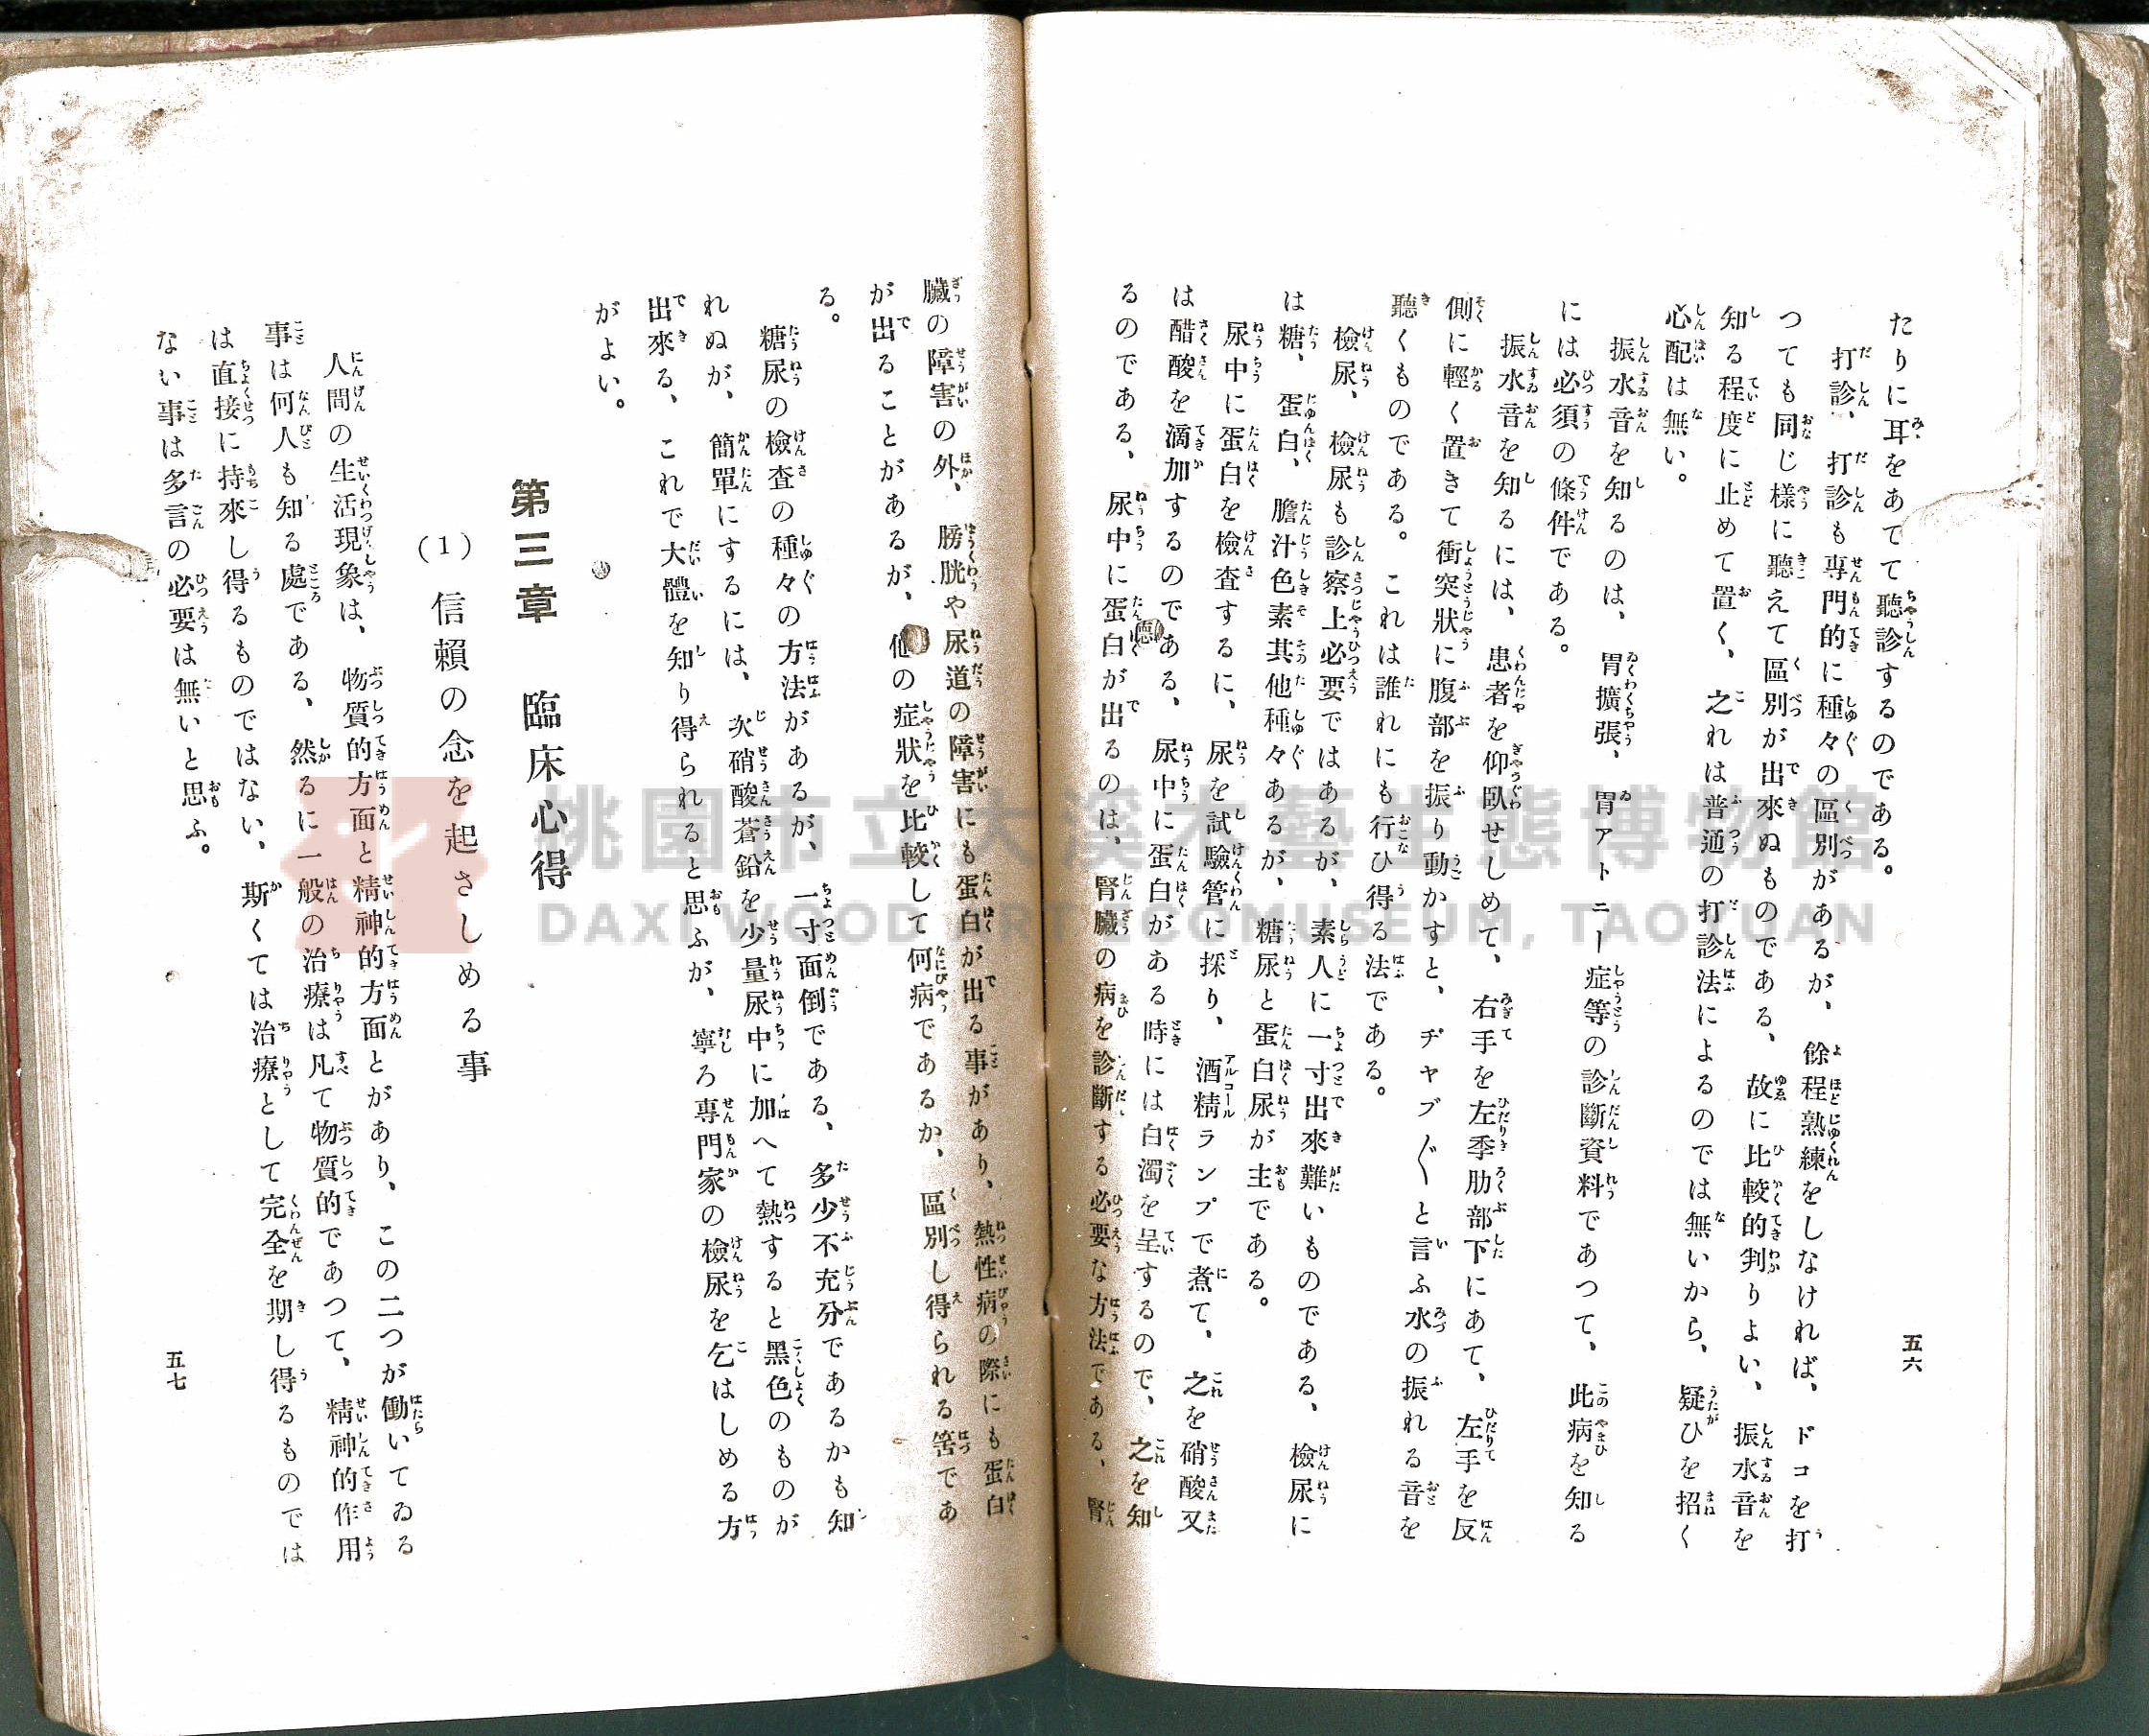 たりに耳をあてて聽診するのである。
打診、打診も專門的に種々の區別があるが、餘程熟練をしなければ、ドコを打
つても同じ樣に聽えて區別が出來ぬものである、故に比較的判りよい、振水音を
知る程度に止めて置く、之れは普通の打診法によるのでは無いから、疑ひを招く
心配は無い。
振水音を知るのは、胃擴張、胃アトニー症等の診斷資料であつて、此病を知る
には必須の條件である。
振水音を知るには、患者を仰臥せしめて、右手を左季肋部下にあて、左手を反
側に輕く置きて衝突狀に腹部を振り動かすと、ヂャブ〱と言ふ水の振れる音を
聽くものである。これは誰れにも行ひ得る法である。
檢尿、檢尿も診察上必要ではあるが、素人に一寸出來難いものである、檢尿に
は糖、蛋白、膽汁色素其他種々あるが、糖尿と蛋白尿が主である。
尿中に蛋白を檢査するに、尿を試驗管に採り、酒精ランプで煮て、之を硝酸又
は醋酸を滴加するのである、尿中に蛋白がある時には白濁を呈するので、之を知
るのである、尿中に蛋白が出るのは、腎臟の病を診斷する必要な方法である、腎
五六
臟の障害の外、膀胱や尿道の障害にも蛋白が出る事があり、熱性病の際にも蛋白
が出ることがあるが、他の症狀を比較して何病であるか、區別し得られる筈であ
る。
糖尿の檢査の種々の方法があるが、一寸面倒である、多少不充分であるかも知
れぬが、簡單にするには、次硝酸蒼鉛を少量尿中に加へて熱すると黑色のものが
出來る、これで大體を知り得られると思ふが、寧ろ專門家の檢尿を乞はしめる方
がよい。
第三章 臨床心得
(1) 信賴の念を起さしめる事
人間の生活現象は、物質的方面と精神的方面とがあり、この二つが働いてゐる
事は何人も知る處である、然るに一般の治療は凡て物質的であつて、精神的作用
は直接に持來し得るものではない、斯くては治療として完全を期し得るものでは
ない事は多言の必要は無いと思ふ。
五七
桃園市立大溪木藝生態博物館
DAXI WOOD ART ECOMUSEUM, TAOYUAN